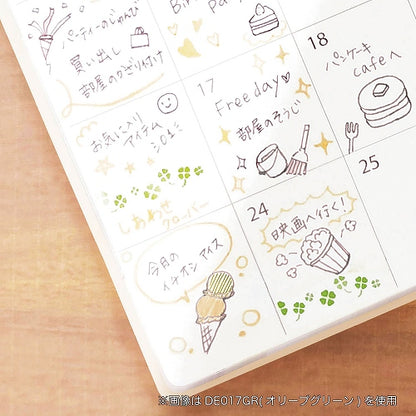 パーティーのじゅんび
買い出し
部屋のかざりつけ
Party
18
パンケーキ
cafeへ
17
Freeday♡
部屋のそうじ
お気に入り
アイテム
しあわせ
クローバー
25
24
映画へ行く!
今月の
イチオシ アイス
※画像は DE017GR( オリーブグリーン ) を使用